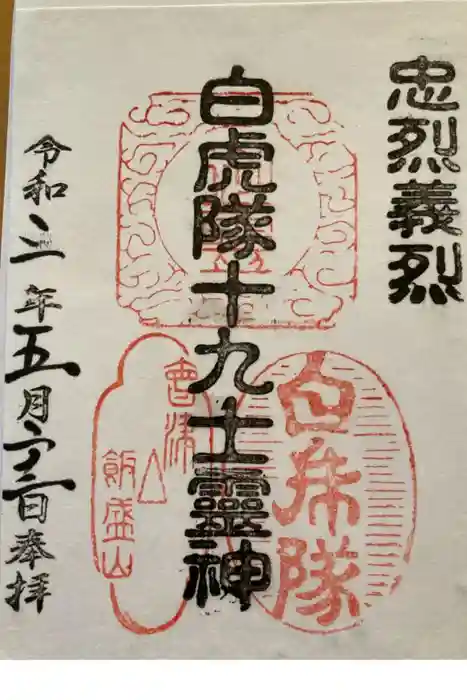 忠烈義烈
白虎隊十九士靈神
會津
飯盛山
白虎隊
令和二年五月二十二日奉拜